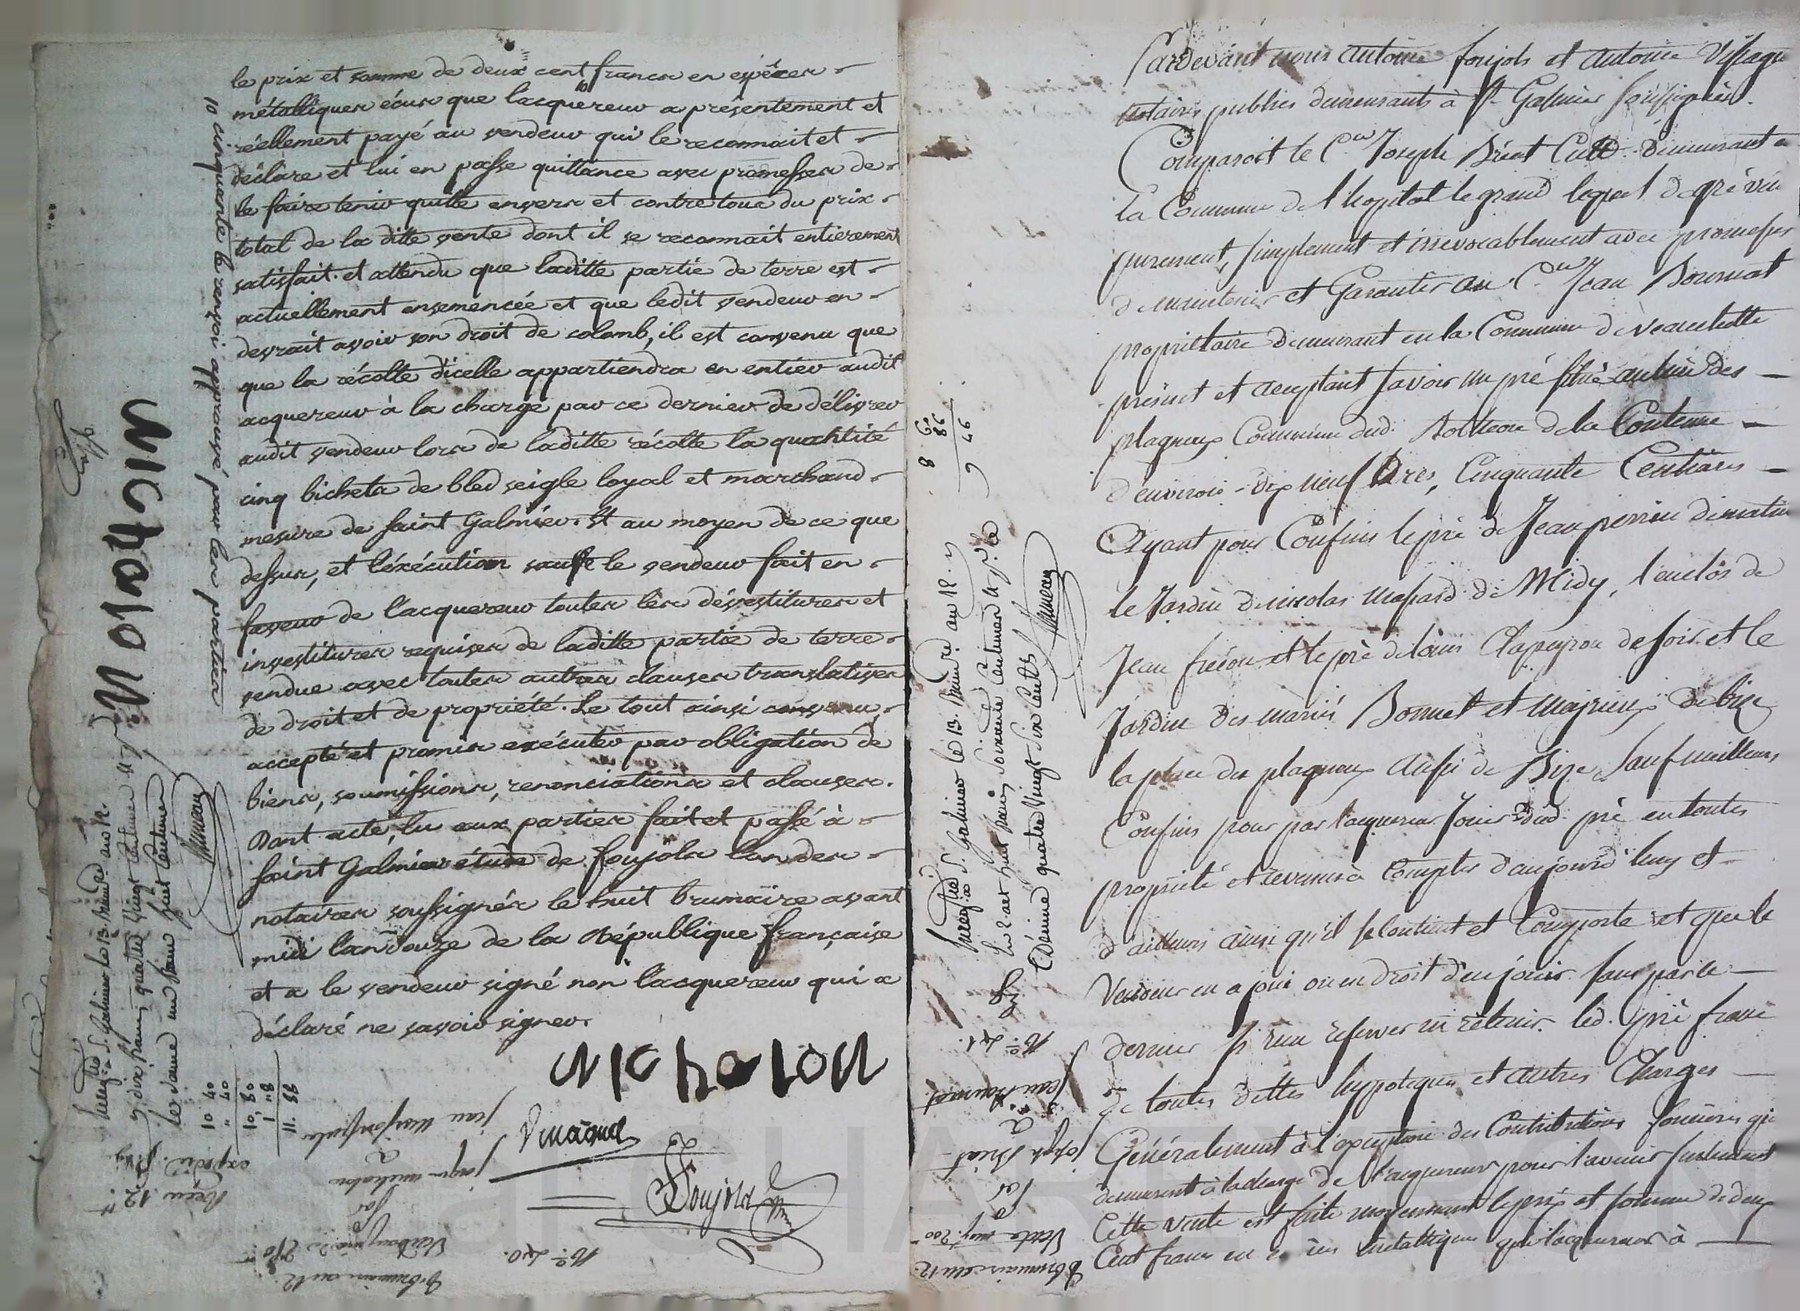 le prix et somme de deux cent francs en espèces
métalliques écus que lacquereur a présentement et
réellement payé au vendeur qui le reconnait et
déclare et lui en passe quittance avec promesses de
le faire tenir quitte envers et contre tous du prix
total de la ditte vente dont il se reconnait entierement
satisfait. et attendu que laditte partie de terre est
actuellement ensemencée et que ledit vendeur en
devrait avoir son droit de colomb, il est convenu que
que la récolte d'icelle appartiendra en entier audit
acquereur à la charge par ce dernier de délivrer
audit vendeur lors de laditte récolte la quantité
cinq bichets de bled seigle loyal et marchand
mesure de saint Galmier. Et au moyen de ce que
dessus, et l'éxécution sauf le vendeur fait en
faveur de l'acquereur toutes les dévestitures et
investitures requises de laditte partie de terre
vendue avec toutes autres clauses translatives
de droit et de propriété. Le tout ainsi convenu,
accepté et promis exécuter par obligation de
biens, soumissions, renonciations et clauses.
Dont acte, lu aux parties fait et passé à
saint Galmier étude de foujols lun des
notaires soussignés le huit brumaire avant
midi l'an douze de la République française
et a le vendeur signé non l'acquereur qui a
déclaré ne savoir signer.
10 cinquante le renvoi approuvé pour les parties
Enregtré à St Galmier le 13 brumre an 12.
dix francs quatre vingt centimes
10 40
40
10,80
1 08
11.88
Foujols
No 240.
8 brumaire an 12.
Pardevant nous antoine foujols et antoine
notaires publics demeurants à St Galmier soussignés.
Comparait le Cen Joseph Briat Cult demeurant en
la Commune de l'hopital le grand lequel de gré vend
purement, simplement et irrevocablement avec promesses
de maintenir et Garantir au Cen Jean Bournat
propriétaire demeurant en la Commune de veauchette
présent et acceptant savoir un pré situé au lieu des
plagneux Commune dud. de la Contenue
d'environ dix neuf Ares, Cinquante Centiares
Ayant pour Confins le pré de Jean perrin de matin
le Jardin de nicolas massard de Midy, l'enclos de
Jean et le pré de Clapeyron de soir et le
Jardin des mariés Bonnet et majrieux de bize
la place des plagneux aussi de Bize, Sauf meilleurs
Confins pour par l'acquereur Jouir dud. pré en toutes
propriété et revenus à Compter d'aujourd'huy et
d'ailleurs ainsi qu'il se Contient et Comporte et que le
Vendeur en a joui ou eu droit d'en jouir sans par le
dernier s'y rien reserver ni retenir. led. pré franc
de toutes dettes hypoteques et autres Charges
Généralement à l'exception des Contributions foncières qui
demeurent à la charge de l'acquereur pour l'avenir seulement
Cette vente est faite moyennant le prix et somme de deux
Cent francs en espèces métalliques que l'acquereur à
8 60
86
9 46
Enregtré à St Galmier le 13 brumre an 12
huit francs soixante Centimes
Décime quatre vingt six Cents
No 241.
Jean Bournat
à
joseph Briat
Par
Vente moyt 200
8 brumaire an 12.